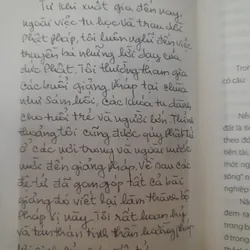 Từ khi xuất gia đến nay,
ngoài việc tu học và trau dồi
Phật pháp, tôi luôn nghĩ đến việc
truyền bá những lời dạy của
đức Phật. Tôi thường tham gia
các buổi giảng pháp tại chùa
như Sám hối, các khóa tu dành
cho tuổi trẻ và người lớn. Thỉnh
thoảng tôi cũng được quý Phật tử
ở các nơi trong và ngoài nước
mời đến giảng pháp. Về sau các
đệ tử đã gom góp tất cả bài
giảng đó viết lại làm thành bộ
pháp vị này. Tôi rất hoan hỷ
và tán thán tinh thần hoằng pháp
Tron
có câu
Nh
đất là ti
theo đó
tiên tài.
một ng
sống"
nghiệp
Nh
đem